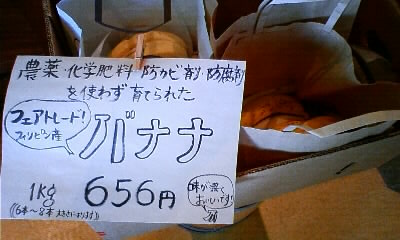 農薬・化学肥料・防カビ剤・防腐剤
を使わず育てられた
フェアトレード!
フィリピン産
バナナ
1kg 656円
((6本〜8本 大きさによります))
味が濃く
おいしいです!